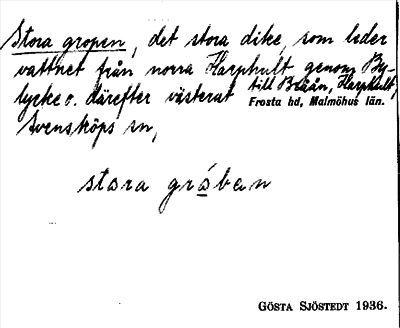 Stora gropen, det stora dike, som leder
vattnet från norra Harphult genom By-
lycke o. därefter västerut till Bråån, Harphult,
Frosta hd, Malmöhus län.
Svensköps sn,
stora gråban
GÖSTA SJÖSTEDT 1936.